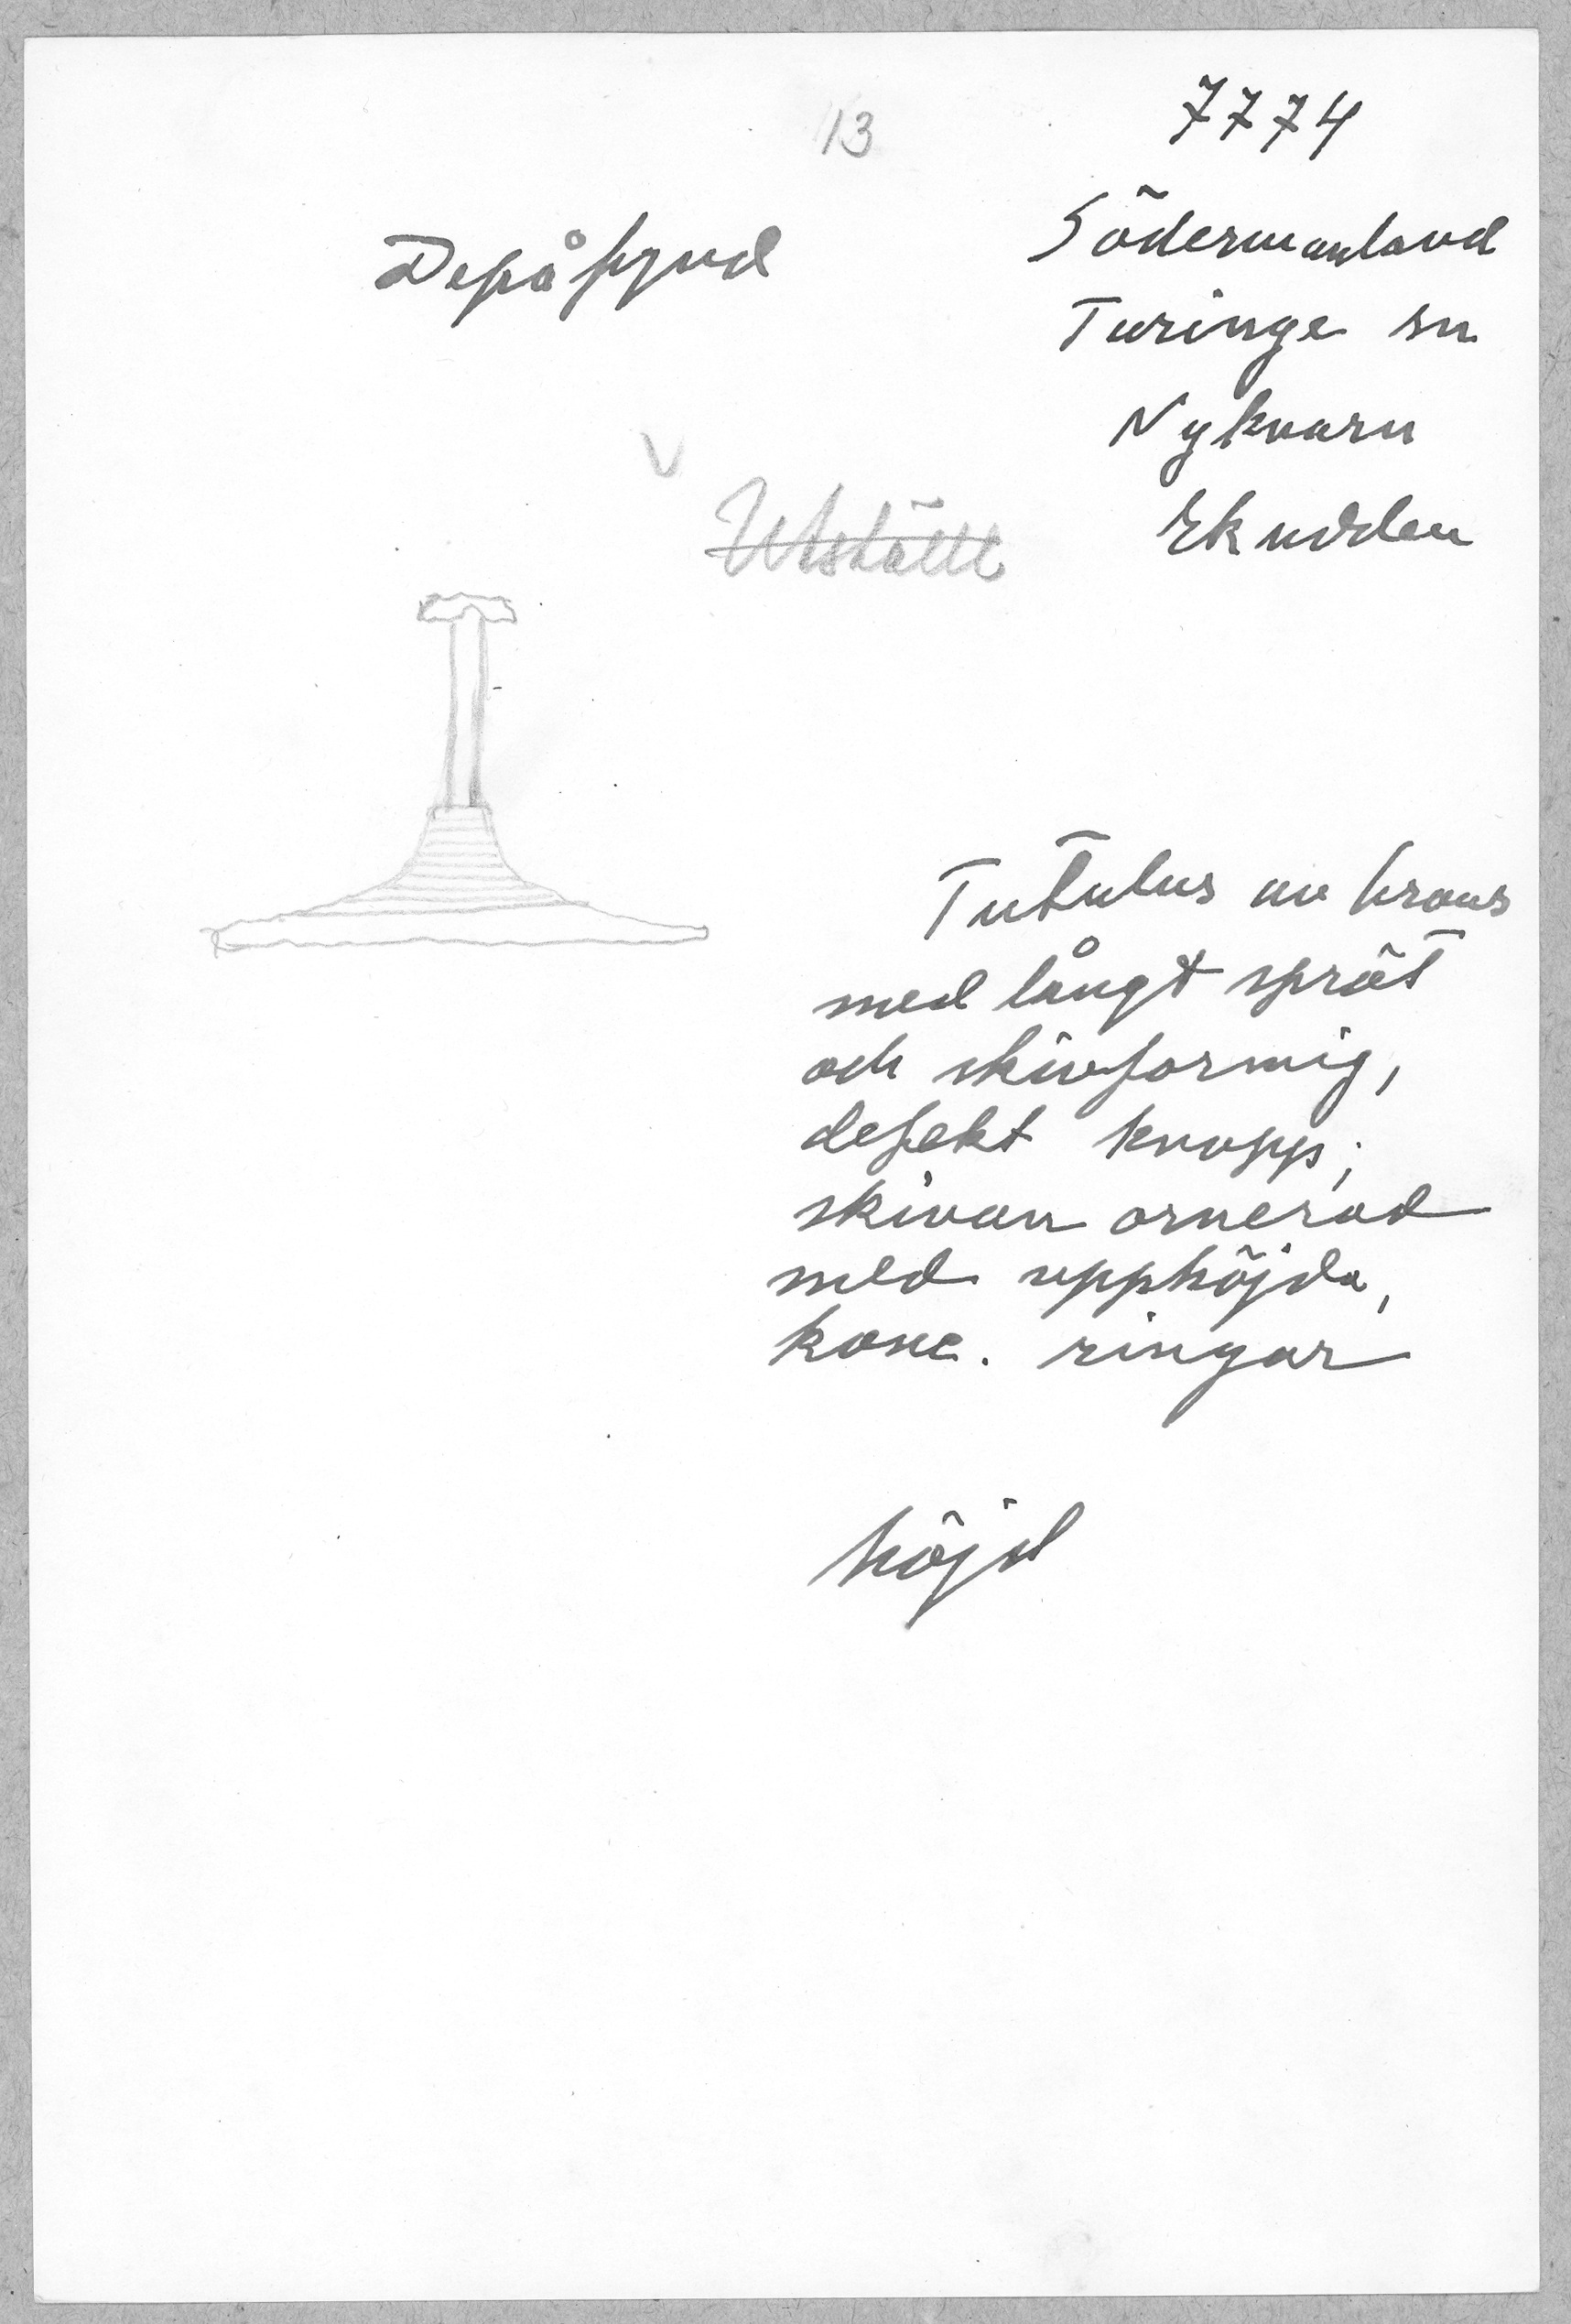 13
7774
Depåfynd
Södermanland
Turinge sn
Nykvarn
V
Utställt
Ekudden
Tutulus av brons
med långt spröt
och skivformig,
defekt knopp;
skivan ornerad
med upphöjda,
konc. ringar
höjd